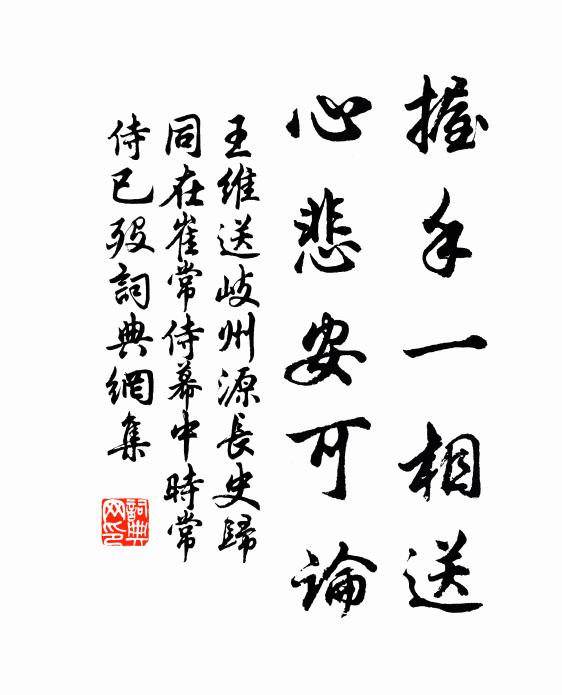 握手一相送
心悲安可論
王維送岐州源長史歸
同在崔常侍幕中時常
侍已歿詞典網集
詞典网印